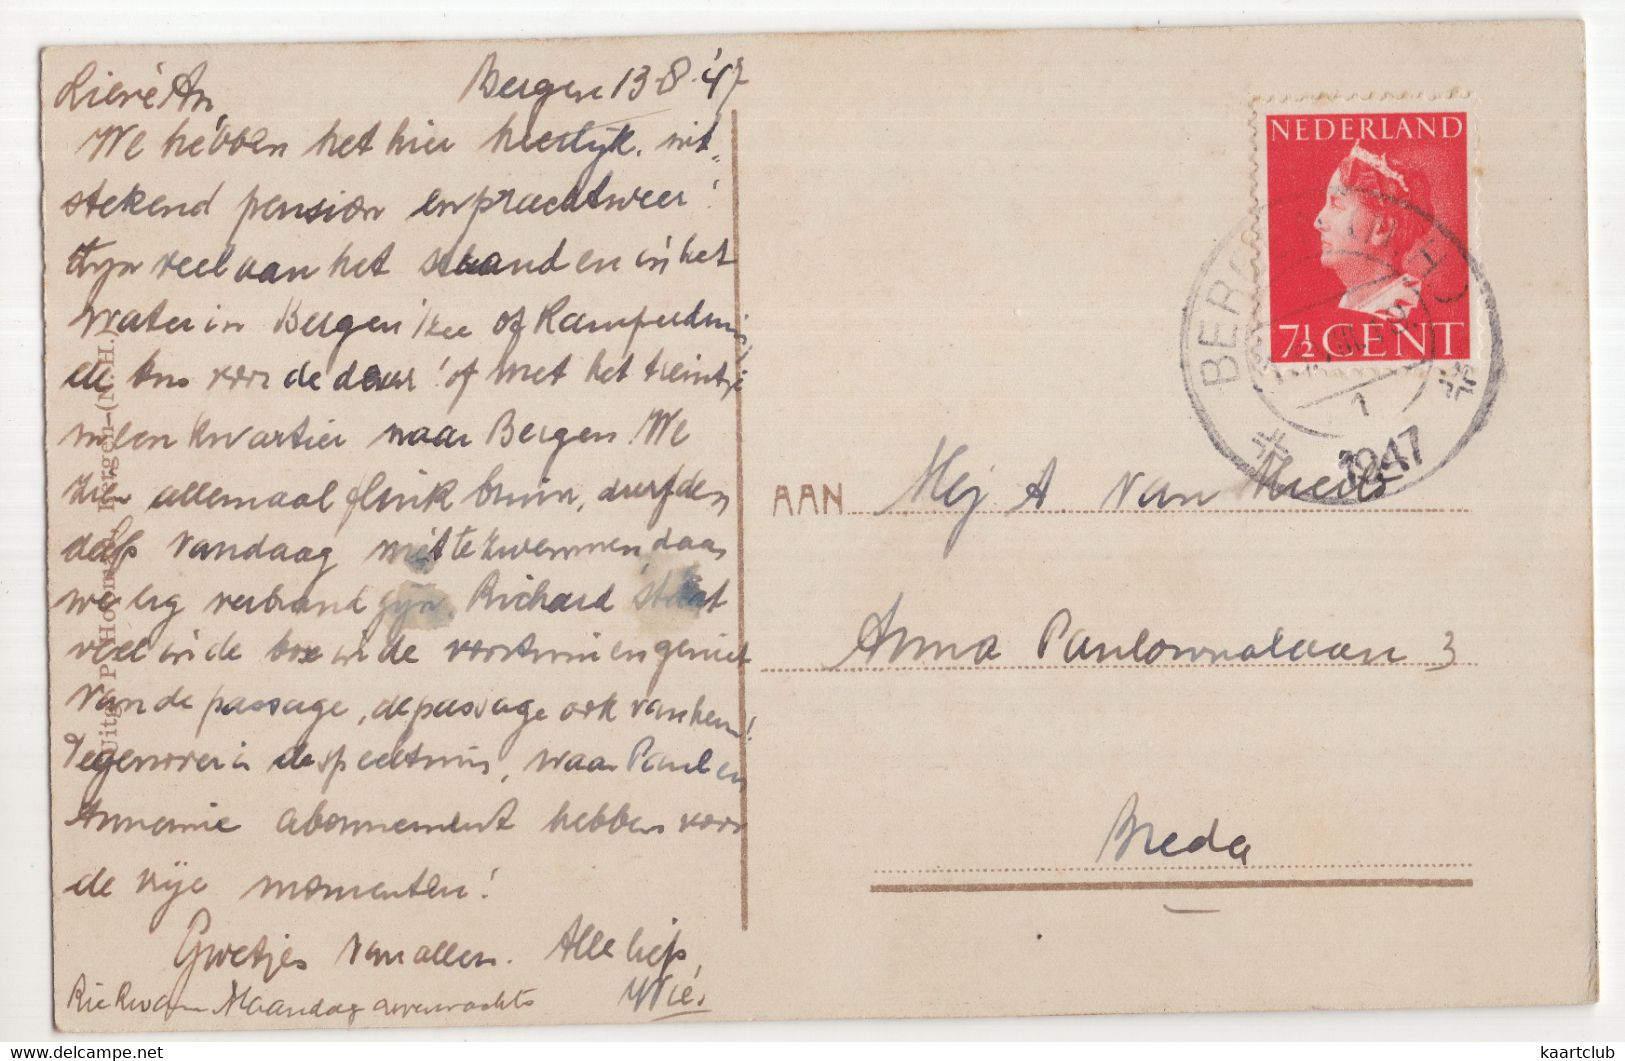 Bergen 13-8-'47
Lieve An,
We hebben het hier heerlijk, uit-
stekend pension en prachtweer!
Zijn veel aan het strand en in het
water in Bergen/zee of Kamperduin,
de bus voor de deur! of met het treintje
in een kwartier naar Bergen. We
zien allemaal flink bruin, durfden
vandaag niet te zwemmen daar
we erg verbrand zijn. Richard staat
veel in de box in de voortuin en geniet
van de passage, de passage ook van hem!
Tegenover is de speeltuin, waar Paul en
Annemie abonnement hebben voor
de vrije momenten!
Groetjes van allen. Alle liefs,
Wies.
Rie kwam Maandag onverwachts
Uitg. P. Hooman, Bergen (N.H.)
NEDERLAND
7½ CENT
1
1947
AAN Mej A. van
Anna Paulownalaan 3
Breda
kaartclub
www.delcampe.net